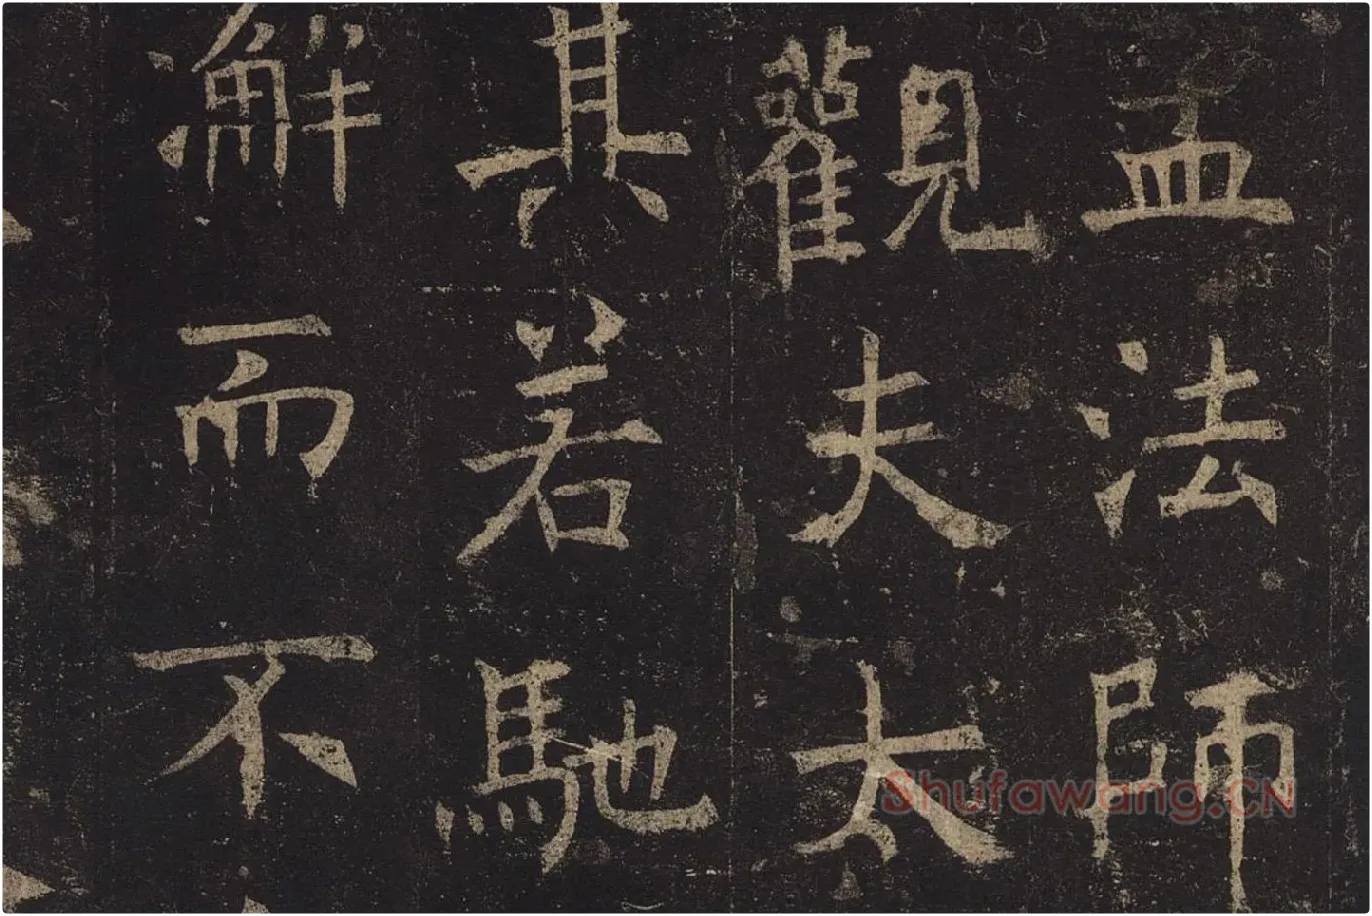 孟法師
觀夫太
其若馳
澥而不
Shufawang.CN